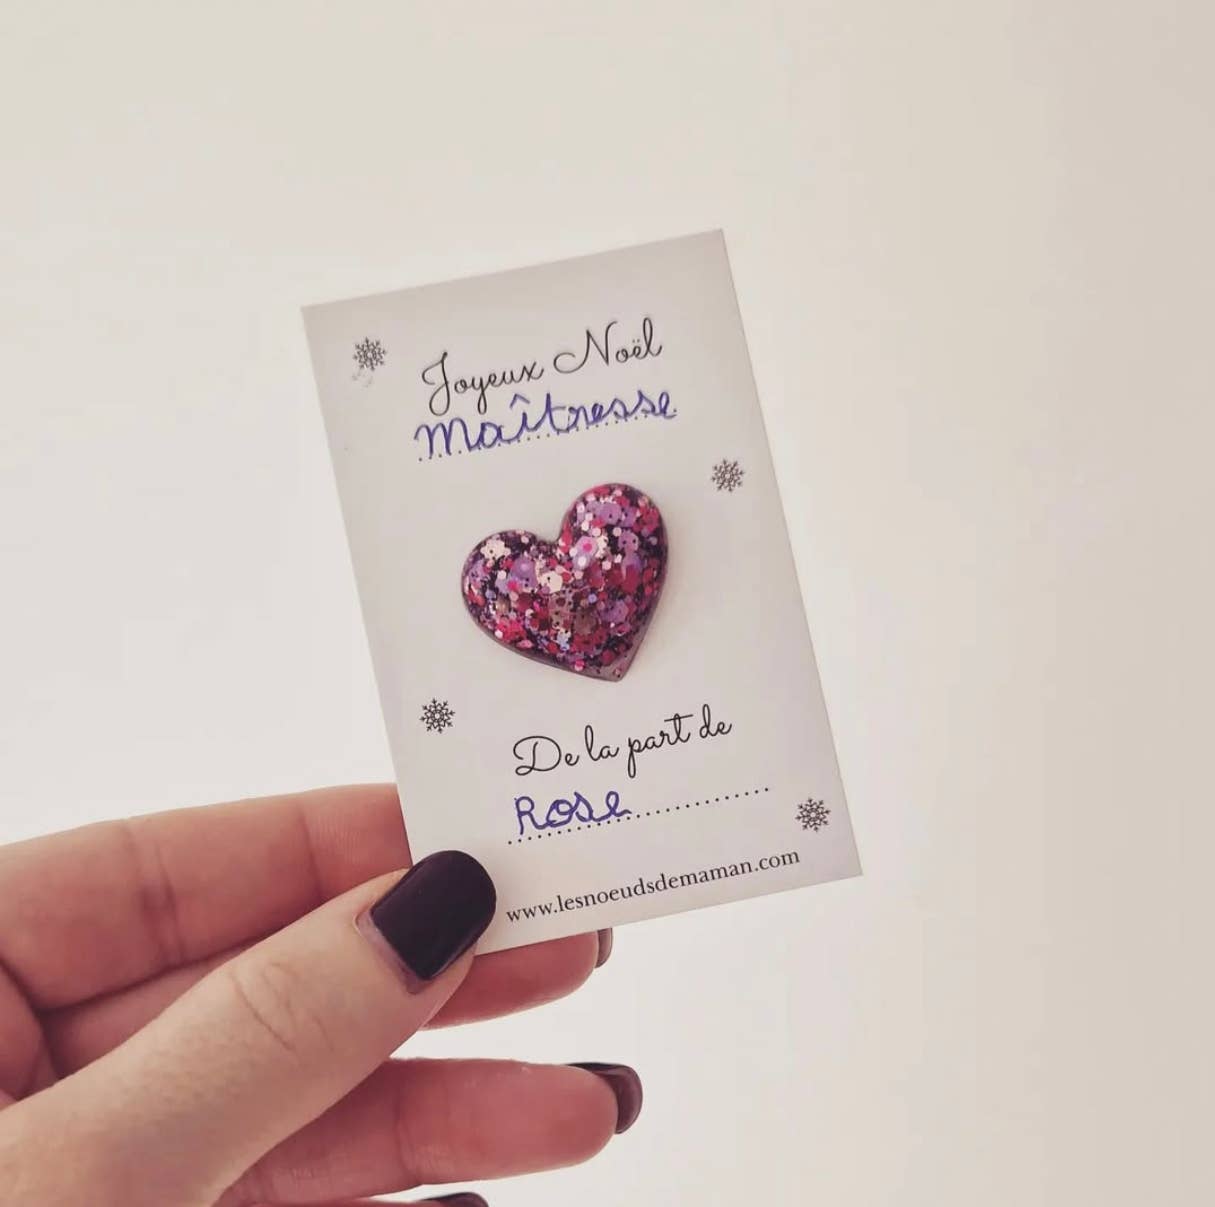 Joyeux Noël
Maîtresse
De la part de
Rose
www.lesnoeudsdemaman.com